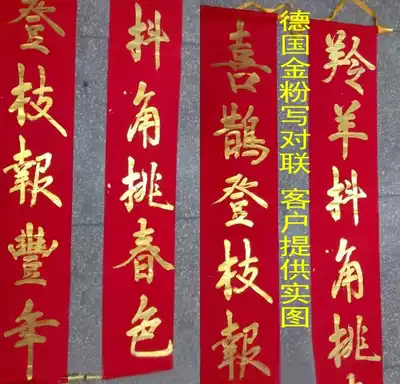 羚羊抖角挑
德国金粉写对联 客户提供实图
喜鹊登枝報
抖角挑春色
登枝報豐年